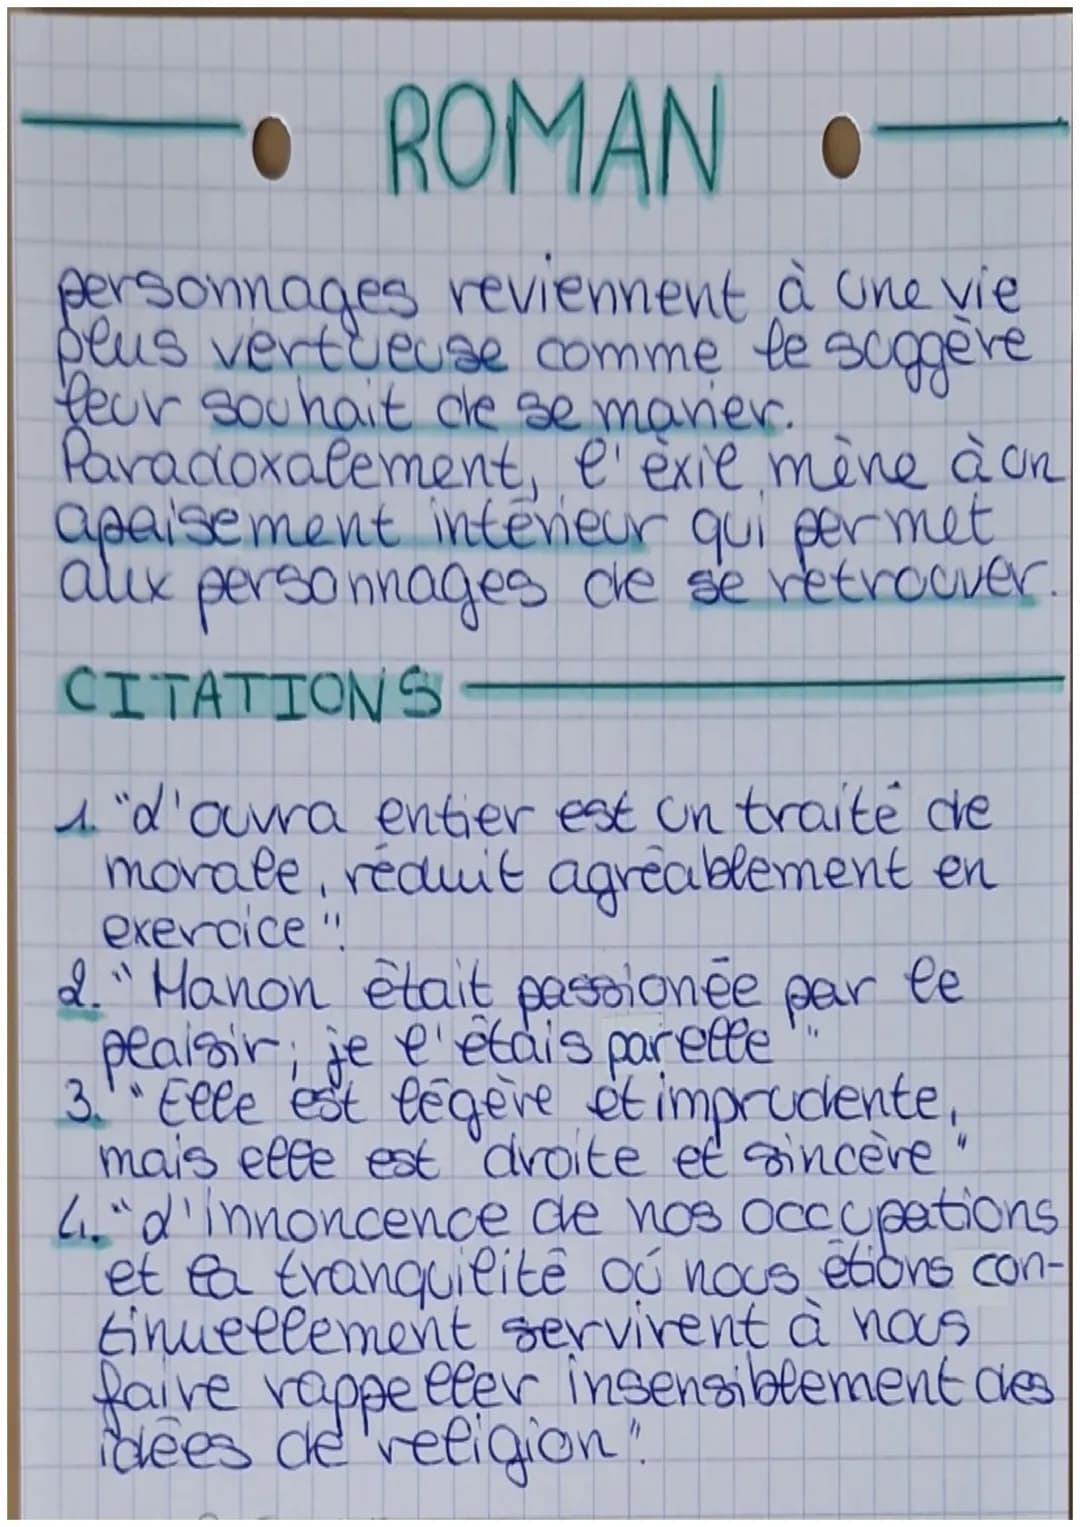 ROMAN
personnages reviennent à une vie
plus vertueuse comme le suggère
leur souhait de se marier.
Paradoxalement, l'exil mène à un
apaisement intérieur qui permet
aux personnages de se retrouver.
CITATIONS
1. "d'ouvra entier est un traité de
morale, réduit agréablement en
exercice".
2. "Manon était passionée par le
plaisir; je l'étais par elle"
3. "Elle est légère et imprudente,
mais elle est droite et sincère"
4. "d'innoncence de nos occupations
et la tranquilité où nous étions con-
tinuellement servirent à nous
faire rappeller insensiblement des
idées de religion".